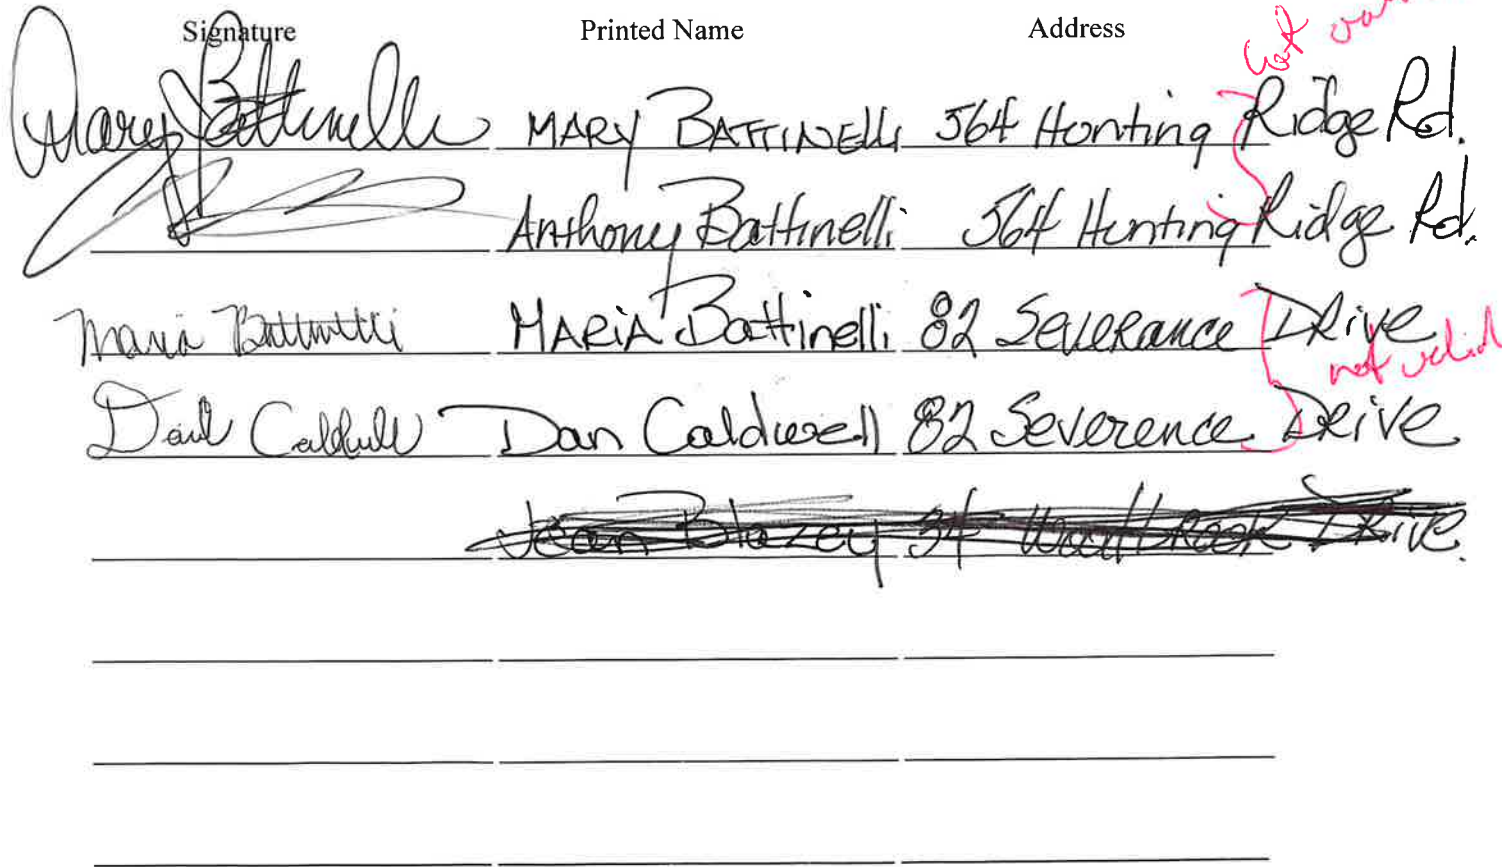 Signature Printed Name Address
Mary Battinelli MARY BATTINELLI 564 Hunting Ridge Rd.
Anthony Battinelli 564 Hunting Ridge Rd.
Maria Battinelli MARiA Battinelli 82 Severance DRive
not valid
Caldwell Dan Caldwell 82 Severence DRive
Jean Blazey 34 DRive